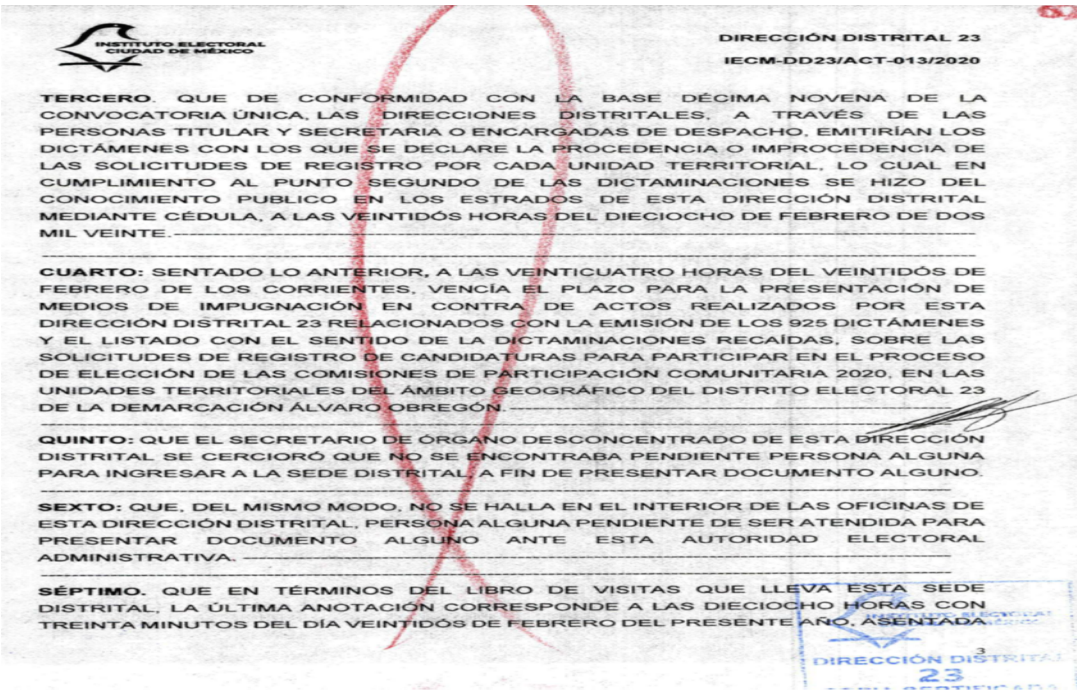 INSTITUTO ELECTORAL
CIUDAD DE MÉXICO
DIRECCIÓN DISTRITAL 23
IECM-DD23/ACT-013/2020
TERCERO. QUE DE CONFORMIDAD CON LA BASE DÉCIMA NOVENA DE LA
CONVOCATORIA ÚNICA, LAS DIRECCIONES DISTRITALES, A TRAVÉS DE LAS
PERSONAS TITULAR Y SECRETARIA O ENCARGADAS DE DESPACHO, EMITIRÍAN LOS
DICTÁMENES CON LOS QUE SE DECLARE LA PROCEDENCIA O IMPROCEDENCIA DE
LAS SOLICITUDES DE REGISTRO POR CADA UNIDAD TERRITORIAL, LO CUAL EN
CUMPLIMIENTO AL PUNTO SEGUNDO DE LAS DICTAMINACIONES SE HIZO DEL
CONOCIMIENTO PUBLICO EN LOS ESTRADOS DE ESTA DIRECCIÓN DISTRITAL
MEDIANTE CÉDULA, A LAS VEINTIDÓS HORAS DEL DIECIOCHO DE FEBRERO DE DOS
MIL VEINTE.
CUARTO: SENTADO LO ANTERIOR, A LAS VEINTICUATRO HORAS DEL VEINTIDÓS DE
FEBRERO DE LOS CORRIENTES, VENCÍA EL PLAZO PARA LA PRESENTACIÓN DE
MEDIOS DE IMPUGNACIÓN EN CONTRA DE ACTOS REALIZADOS POR ESTA
DIRECCIÓN DISTRITAL 23 RELACIONADOS CON LA EMISIÓN DE LOS 925 DICTÁMENES
Y EL LISTADO CON EL SENTIDO DE LA DICTAMINACIONES RECAÍDAS, SOBRE LAS
SOLICITUDES DE REGISTRO DE CANDIDATURAS PARA PARTICIPAR EN EL PROCESO
DE ELECCIÓN DE LAS COMISIONES DE PARTICIPACIÓN COMUNITARIA 2020, EN LAS
UNIDADES TERRITORIALES DEL ÁMBITO GEOGRÁFICO DEL DISTRITO ELECTORAL 23
DE LA DEMARCACIÓN ÁLVARO OBREGÓN.
QUINTO: QUE EL SECRETARIO DE ÓRGANO DESCONCENTRADO DE ESTA DIRECCIÓN
DISTRITAL SE CERCIORÓ QUE NO SE ENCONTRABA PENDIENTE PERSONA ALGUNA
PARA INGRESAR A LA SEDE DISTRITAL A FIN DE PRESENTAR DOCUMENTO ALGUNO.
SEXTO: QUE, DEL MISMO MODO, NO SE HALLA EN EL INTERIOR DE LAS OFICINAS DE
ESTA DIRECCIÓN DISTRITAL, PERSONA ALGUNA PENDIENTE DE SER ATENDIDA PARA
PRESENTAR DOCUMENTO ALGUNO ANTE ESTA AUTORIDAD ELECTORAL
ADMINISTRATIVA.
SÉPTIMO. QUE EN TÉRMINOS DEL LIBRO DE VISITAS QUE LLEVA ESTA SEDE
DISTRITAL, LA ÚLTIMA ANOTACIÓN CORRESPONDE A LAS DIECIOCHO HORAS CON
TREINTA MINUTOS DEL DÍA VEINTIDÓS DE FEBRERO DEL PRESENTE AÑO, ASENTADA
3
DIRECCIÓN DISTRITAL
23